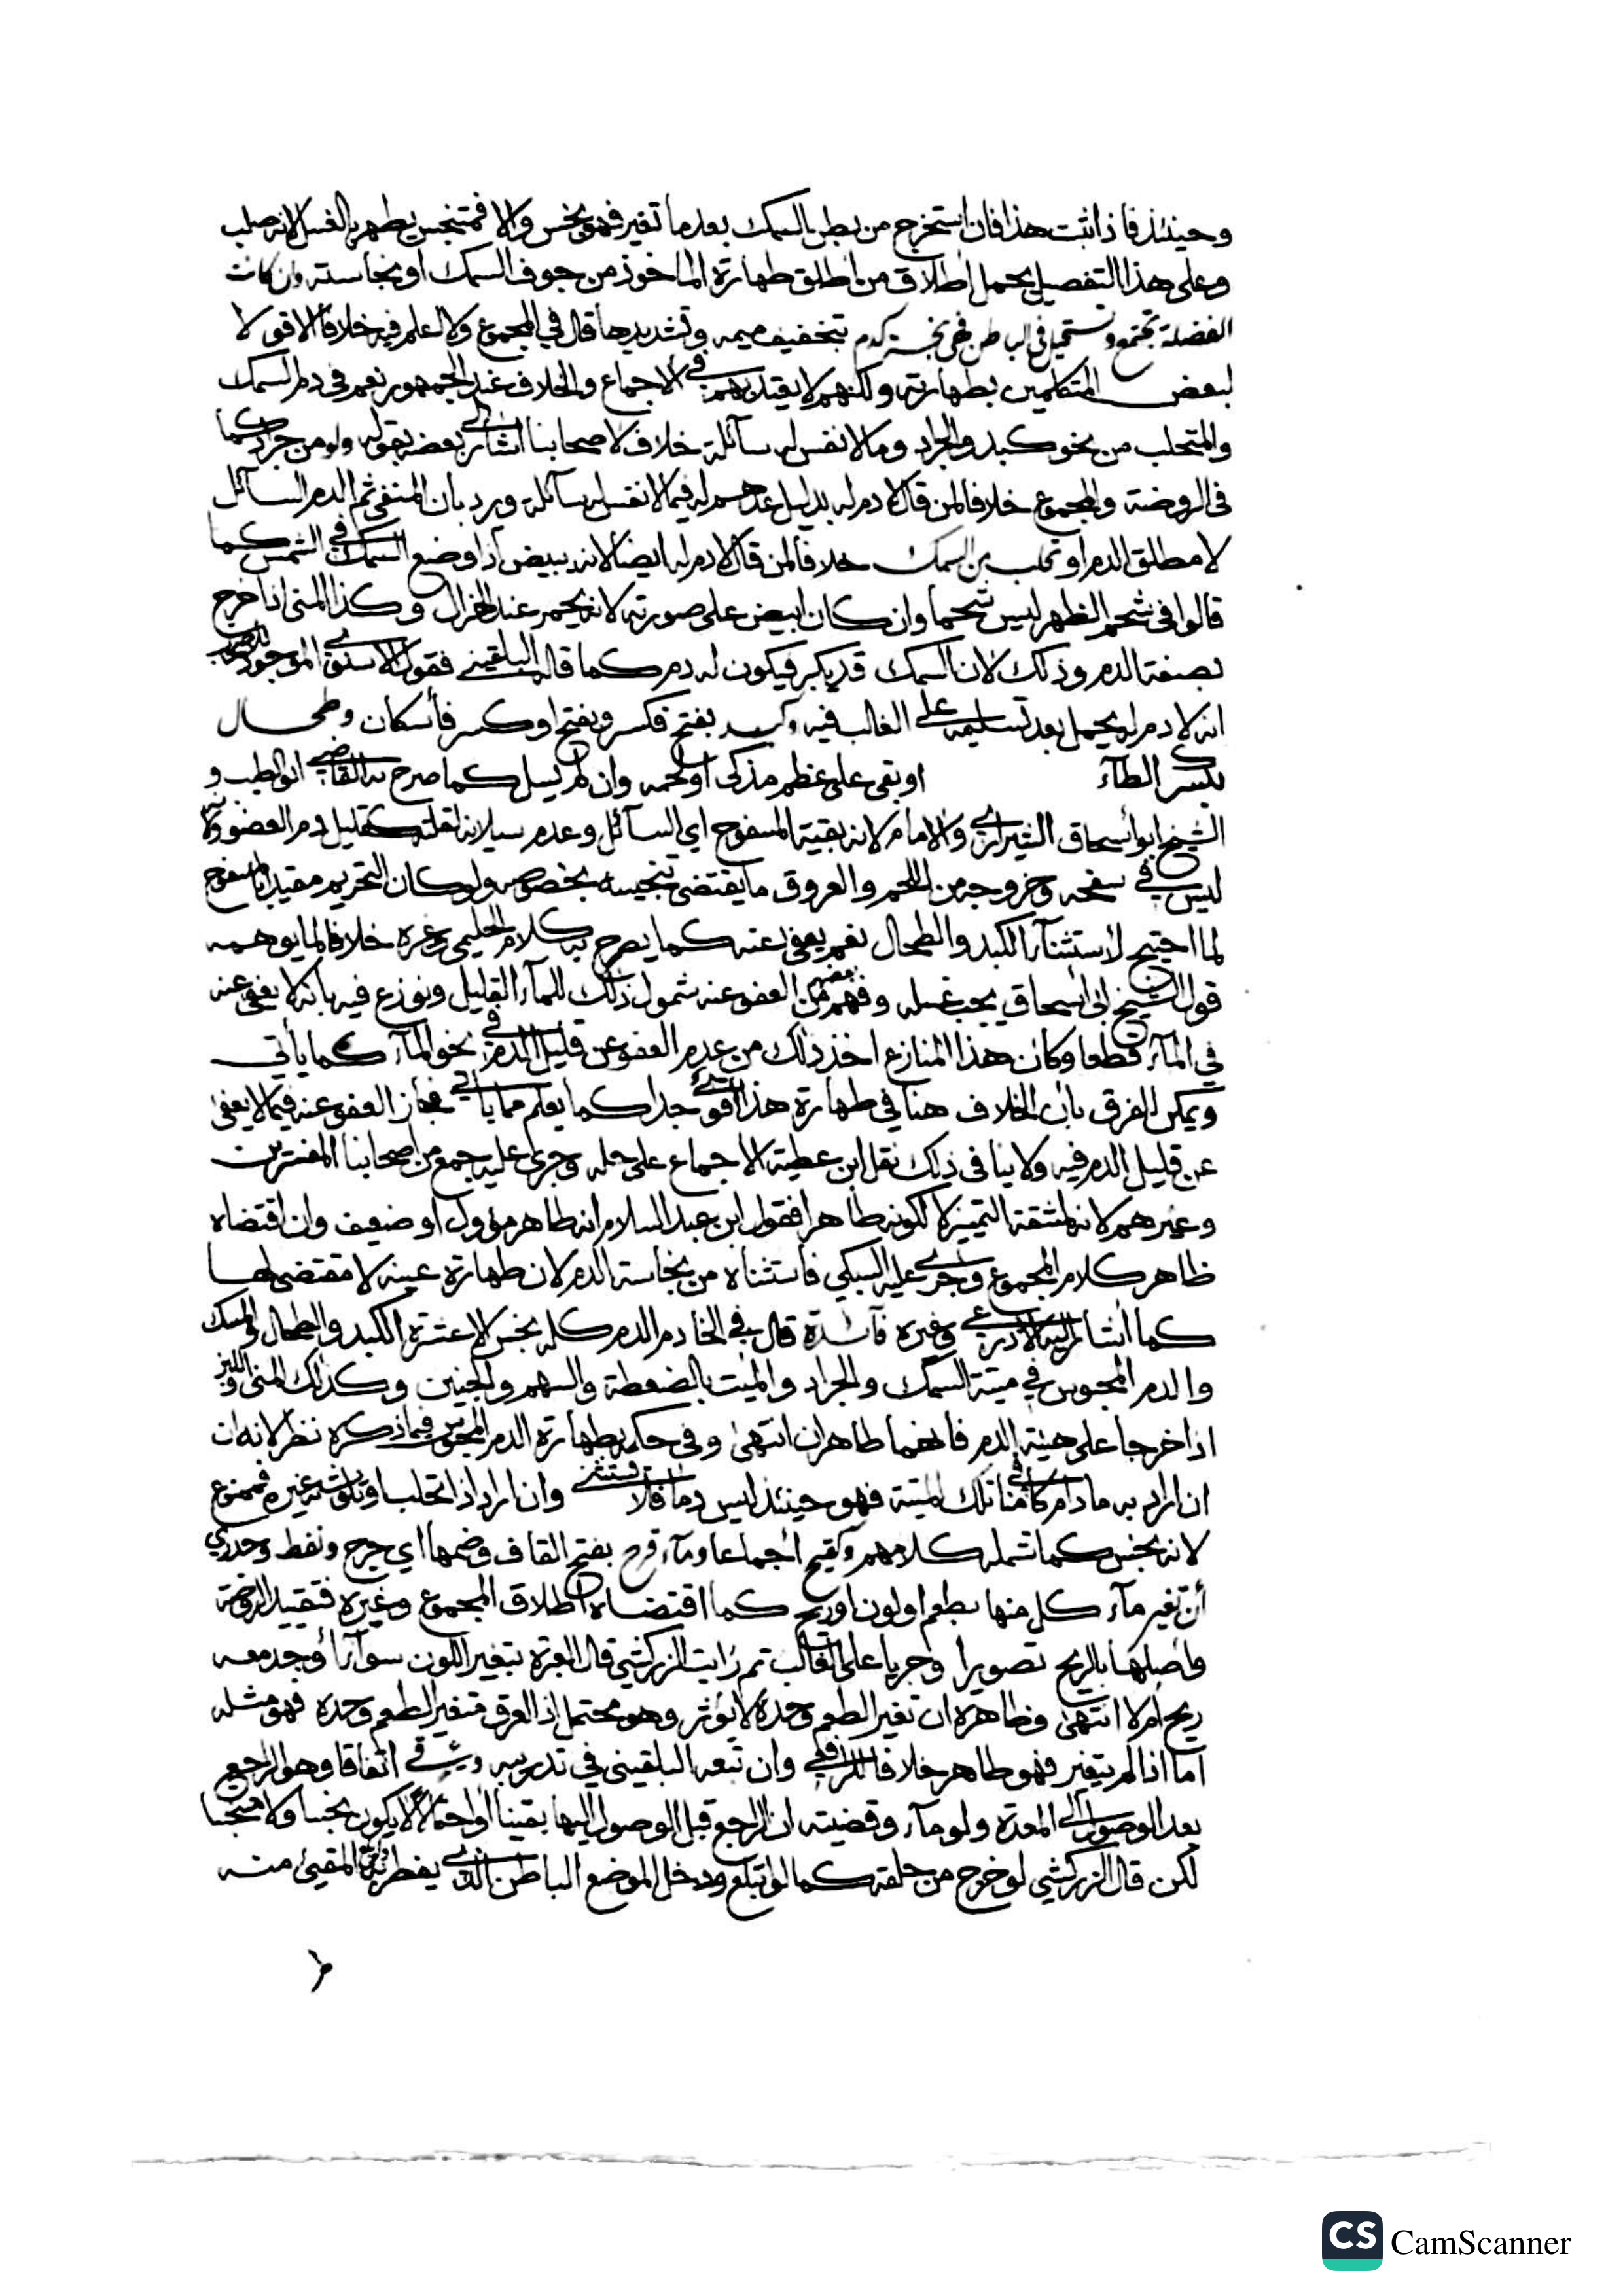 وحينئذ فاذا ثبت هذا فان استخرج من بطن السمك بعد ما تغير فهو نجس والا فمتنجس يطهر بالغسل لانه صلب
وعلى هذا التفصيل يحمل اطلاق من اطلق طهارة الماخوذ من جوف السمك او نجاسته وان كانت
الفضلة تجتمع وتستحيل في الباطن فهي نجسة كدم بتخفيف ميمه وتشديدها قال في المجموع ولا اعلم فيه خلافا الا قولا
لبعض المتكلمين بطهارته ولكنهم لا يعتد بهم في الاجماع والخلاف عند الجمهور نعم في دم السمك
والمتحلب من نحو كبد والجراد وما لا نفس له سآئلة خلاف لاصحابنا اشار الى بعضه بقوله ولو من جراد كما
في الروضة والمجموع خلافا لمن قال لا دم له بدليل عدهم له فيما لا نفس له سآئلة ورد بان المنفي ثم الدم السآئل
لا مطلق الدم او تحلب من السمك خلافا لمن قال لا دم له ايضا لانه يبيض اذا وضع السمك في الشمس كما
قالوا في شحم الظهر ليس شحما وان كان ابيض على صورته لانه يحمر عند الهزال وكذا المني اذا خرج
بصفة الدم وذلك لان السمك قد يكبر فيكون له دم كما قاله البلقيني فقول الاسنوي الموجود
انه لا دم له يحمل بعد تسليمه على الغالب فيه وكبد بفتح فكسر وبفتح او كسر فأسكان وطحال
بكسر الطآء او بقي على عظم مذكى او لحمه وان لم يسل كما صرح به القاضي ابو الطيب و
الشيخ ابو أسحاق الشيرازي والامام لانه بقية المسفوح اي السآئل وعدم سيلانه لقلته كقليل دم العضو ولانه
ليس في سفحه وخروجه من اللحم والعروق ما يقتضي تنجيسه بخصوصه ولو كان التحريم مقيدا بالمسفوح
لما احتيج لأستثنآء الكبد والطحال نعم يعفى عنه كما يصرح به كلام الحليمي وغيره خلافا لما يوهمه
قول الشيخ ابي أسحاق يجب غسله وفهم بعضهم من العفو عنه شمول ذلك للمآء القليل ونوزع فيه بانه لا يعفى عنه
في المآء قطعا وكان هذا المنازع اخذ ذلك من عدم العفو عن قليل الدم في نحو المآء كما يأتي
ويمكن الفرق بان الخلاف هنا في طهارة هذا قوي جدا كما يعلم مما ياتي فجاز العفو عنه فيما لا يعفى
عن قليل الدم فيه ولا ينافي ذلك نقل ابن عطية الاجماع على حله وجرى عليه جمع من اصحابنا المفسرين
وغيرهم لانه لمشقة التمييز لا لكونه طاهرا فقول ابن عبد السلام انه طاهر مؤول او ضعيف وان اقتضاه
ظاهر كلام المجموع وجرى عليه السبكي فاستثناه من نجاسة الدم لان طهارة عينه لا مقتضي لها
كما أشار اليه الاذرعي وغيره فآئدة قال في الخادم الدم كله نجس الا عشرة الكبد والطحال والمسك
والدم المحبوس في ميتة السمك والجراد والميت بالضغطة والسهم والجنين وكذلك المني واللبن
اذا خرجا على هيئة الدم فانهما طاهران انتهى وفي حكمه بطهارة الدم المحبوس فيما ذكره نظر لانه ان
ان اراد به ما دام كامنا في تلك الميتة فهو حينئذ ليس دما فلا يستثنى وان اراد اذا تحلب او تلوث به غيره فممنوع
لانه نجس كما شمله كلامهم وقيح اجماعا ومآء قرح بفتح القاف وضمها اي جرح ونفط وجدري
أن تغير مآء كل منها بطعم او لون او ريح كما اقتضاه اطلاق المجموع وغيره فتقييد الروضة
وأصلها بالريح تصويرا وجريا على الغالب ثم رايت الزركشي قال العبرة بتغير اللون سوآء أوجد معه
ريح ام لا انتهى وظاهره ان تغير الطعم وحده لا يؤثر وهو محتمل اذ العرق متغير الطعم وحده فهو مثله
اما اذا لم يتغير فهو طاهر خلافا للرافعي وان تبعه البلقيني في تدريبه وقيء اتفاقا وهو الراجع
بعد الوصول الى المعدة ولو مآء وقضيته ان الراجع قبل الوصول اليها يقينا او احتمالا لا يكون نجسا ولا متنجسا
لكن قال الزركشي لو خرج من حلقه كما لو ابتلع ودخل الموضع الباطن الذي يفطر المقيئ منه
CS CamScanner